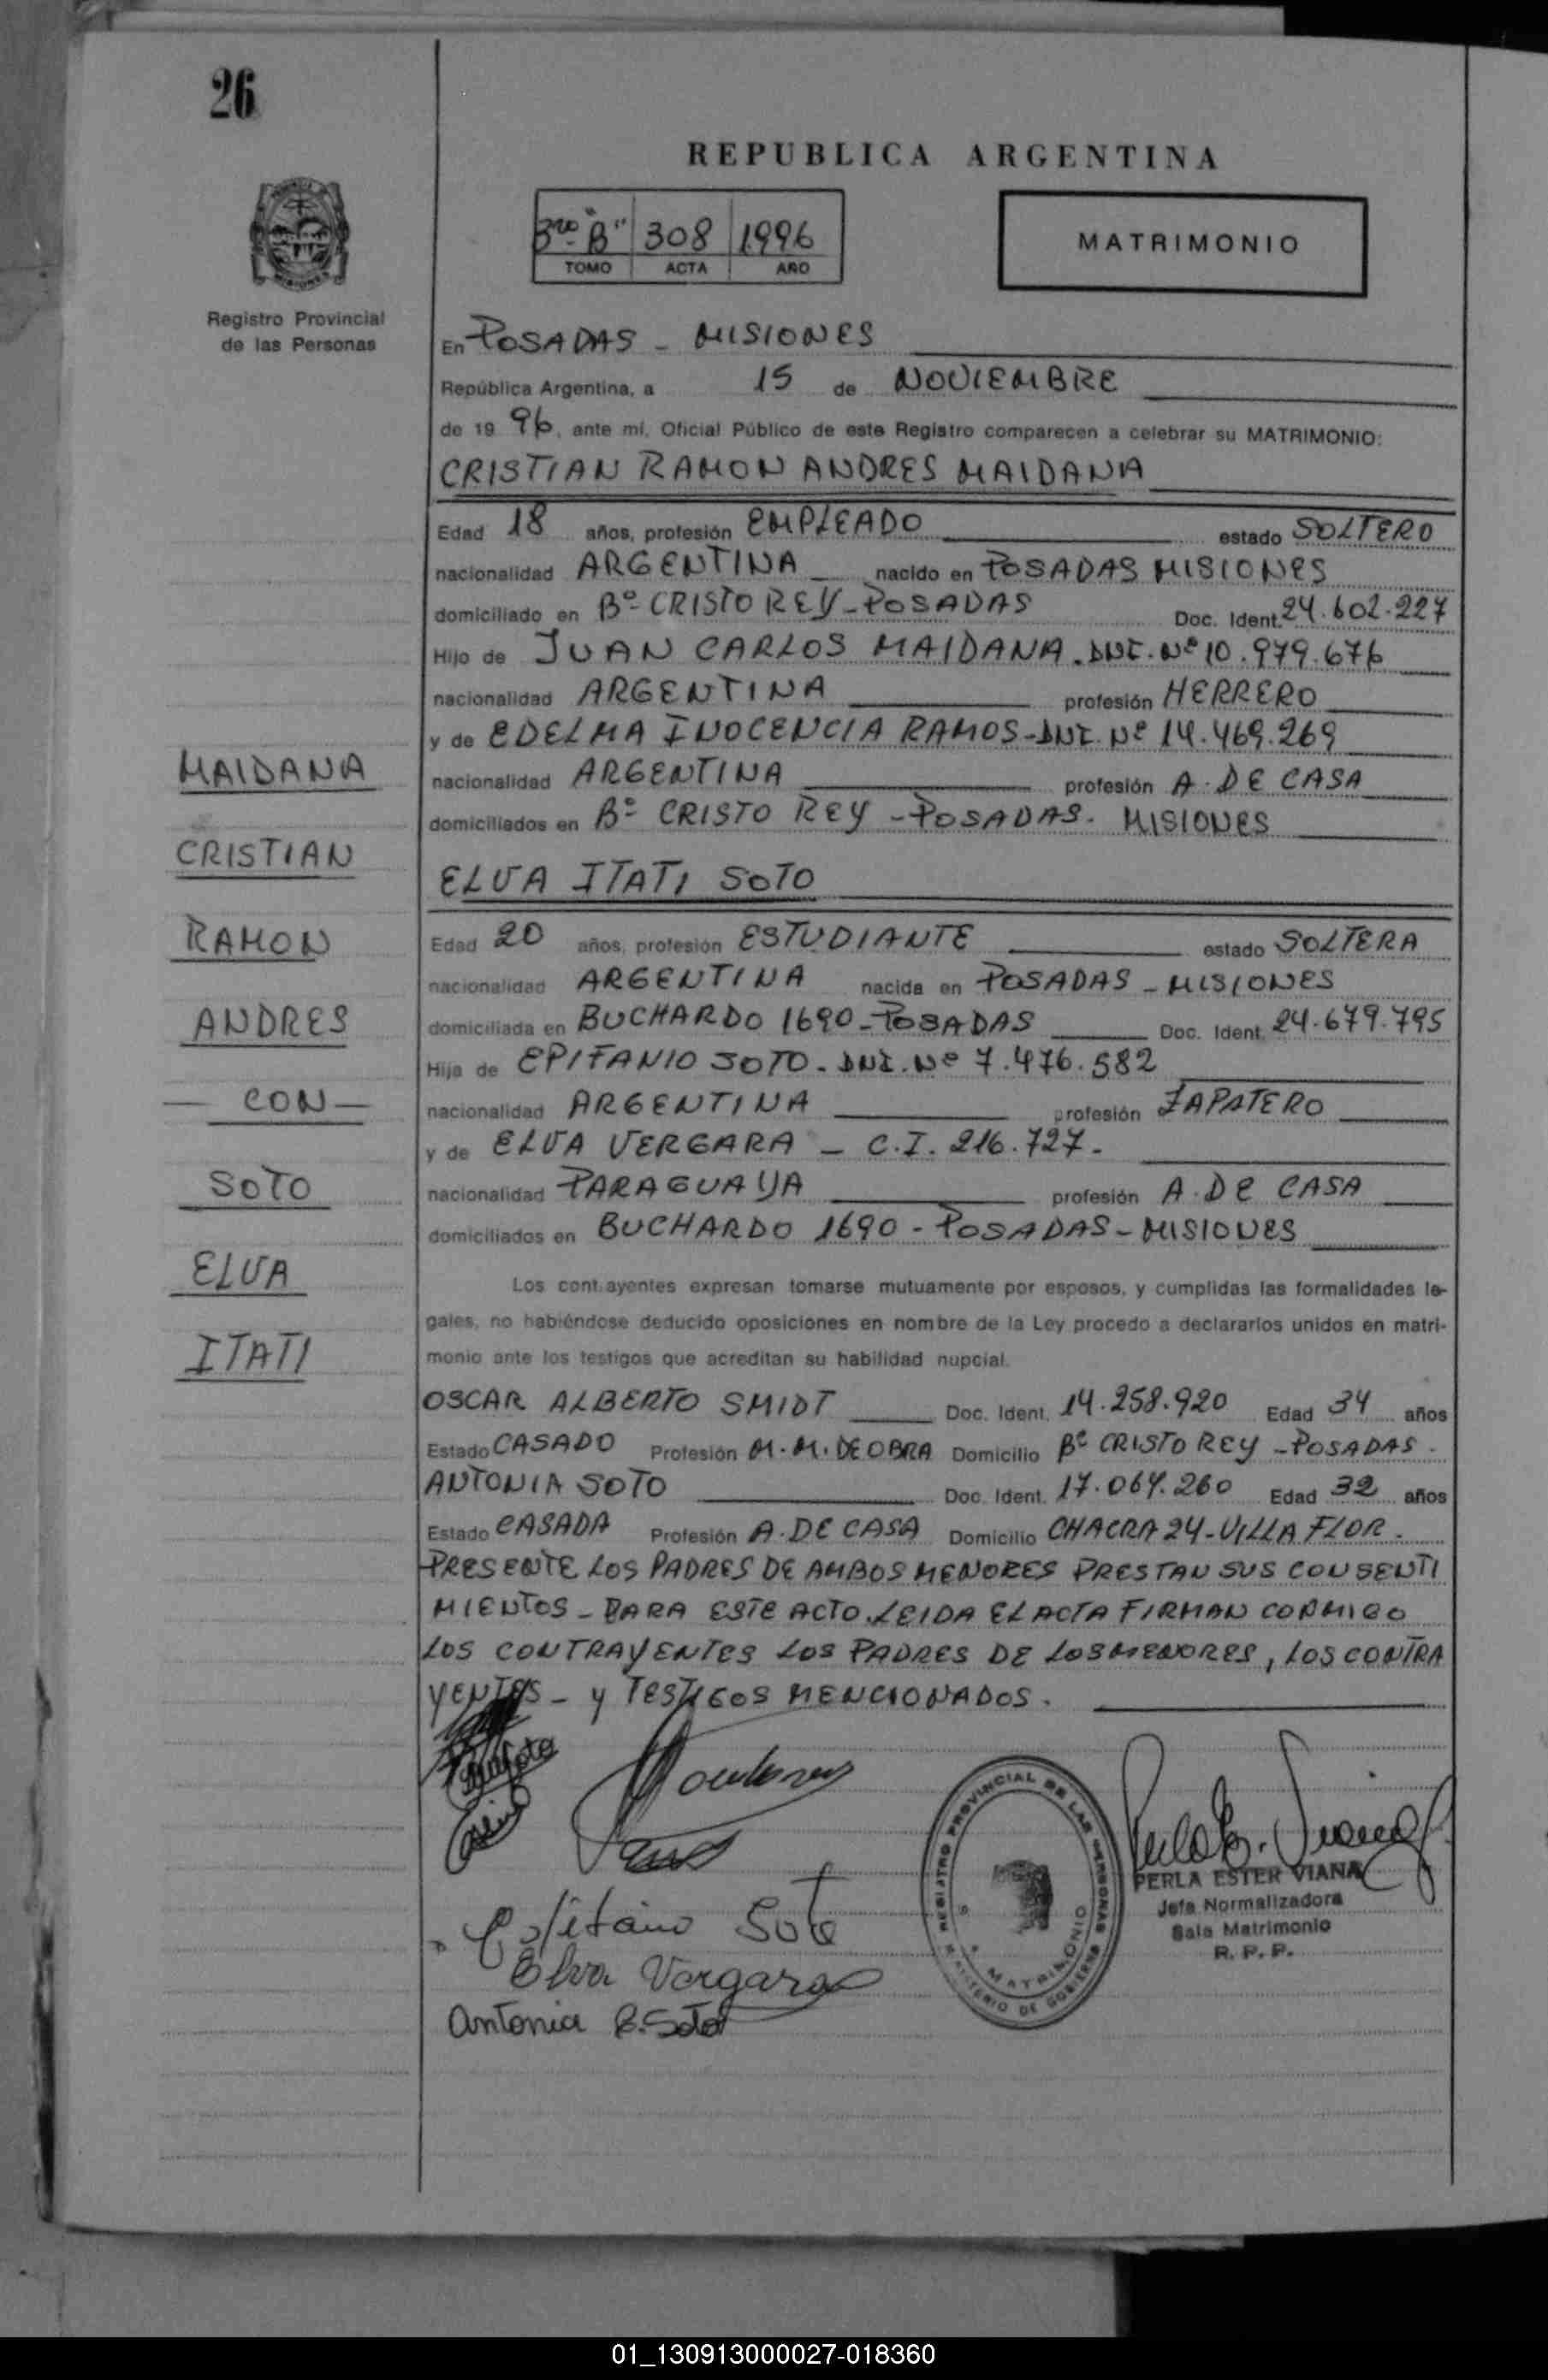 26
REPUBLICA ARGENTINA
3ro "B" 308 1996
TOMO ACTA AÑO
MATRIMONIO
Registro Provincial
de las Personas
En POSADAS - MISIONES
República Argentina, a 15 de NOVIEMBRE
de 19 96, ante mí, Oficial Público de este Registro comparecen a celebrar su MATRIMONIO:
CRISTIAN RAMON ANDRES MAIDANA
Edad 18 años, profesión EMPLEADO estado SOLTERO
nacionalidad ARGENTINA nacido en POSADAS MISIONES
domiciliado en Bº CRISTO REY - POSADAS Doc. Ident. 24.602.227
Hijo de JUAN CARLOS MAIDANA. DNI. Nº 10.979.676
nacionalidad ARGENTINA profesión HERRERO
y de EDELMA INOCENCIA RAMOS - DNI. Nº 14.469.269
nacionalidad ARGENTINA profesión A. DE CASA
domiciliados en Bº CRISTO REY - POSADAS. MISIONES
ELVA ITATI SOTO
Edad 20 años, profesión ESTUDIANTE estado SOLTERA
nacionalidad ARGENTINA nacida en POSADAS - MISIONES
domiciliada en BUCHARDO 1690 - POSADAS Doc. Ident. 24.679.795
Hija de EPIFANIO SOTO. DNI. Nº 7.476.582
nacionalidad ARGENTINA profesión ZAPATERO
y de ELVA VERGARA - C.I. 216.727.
nacionalidad PARAGUAYA profesión A. DE CASA
domiciliados en BUCHARDO 1690 - POSADAS - MISIONES
Los contrayentes expresan tomarse mutuamente por esposos, y cumplidas las formalidades le-
gales, no habiéndose deducido oposiciones en nombre de la Ley procedo a declararlos unidos en matri-
monio ante los testigos que acreditan su habilidad nupcial.
OSCAR ALBERTO SMIDT Doc. Ident. 14.258.920 Edad 34 años
Estado CASADO Profesión M.M. DE OBRA Domicilio Bº CRISTO REY - POSADAS.
ANTONIA SOTO Doc. Ident. 17.064.260 Edad 32 años
Estado CASADA Profesión A. DE CASA Domicilio CHACRA 24 - VILLA FLOR.
PRESENTE LOS PADRES DE AMBOS MENORES PRESTAN SUS CONSENTI
MIENTOS - PARA ESTE ACTO. LEIDA EL ACTA FIRMAN CONMIGO
LOS CONTRAYENTES LOS PADRES DE LOS MENORES, LOS CONTRA
YENTES - Y TESTIGOS MENCIONADOS.
MAIDANA
CRISTIAN
RAMON
ANDRES
- CON -
SOTO
ELVA
ITATI
Epifanio Soto
Elva Vergara
Antonia B. Soto
REGISTRO PROVINCIAL DE LAS PERSONAS
MATRIMONIO
MINISTERIO DE GOBIERNO
PERLA ESTER VIANA
Jefa Normalizadora
Sala Matrimonio
R. P. P.
01_130913000027-018360